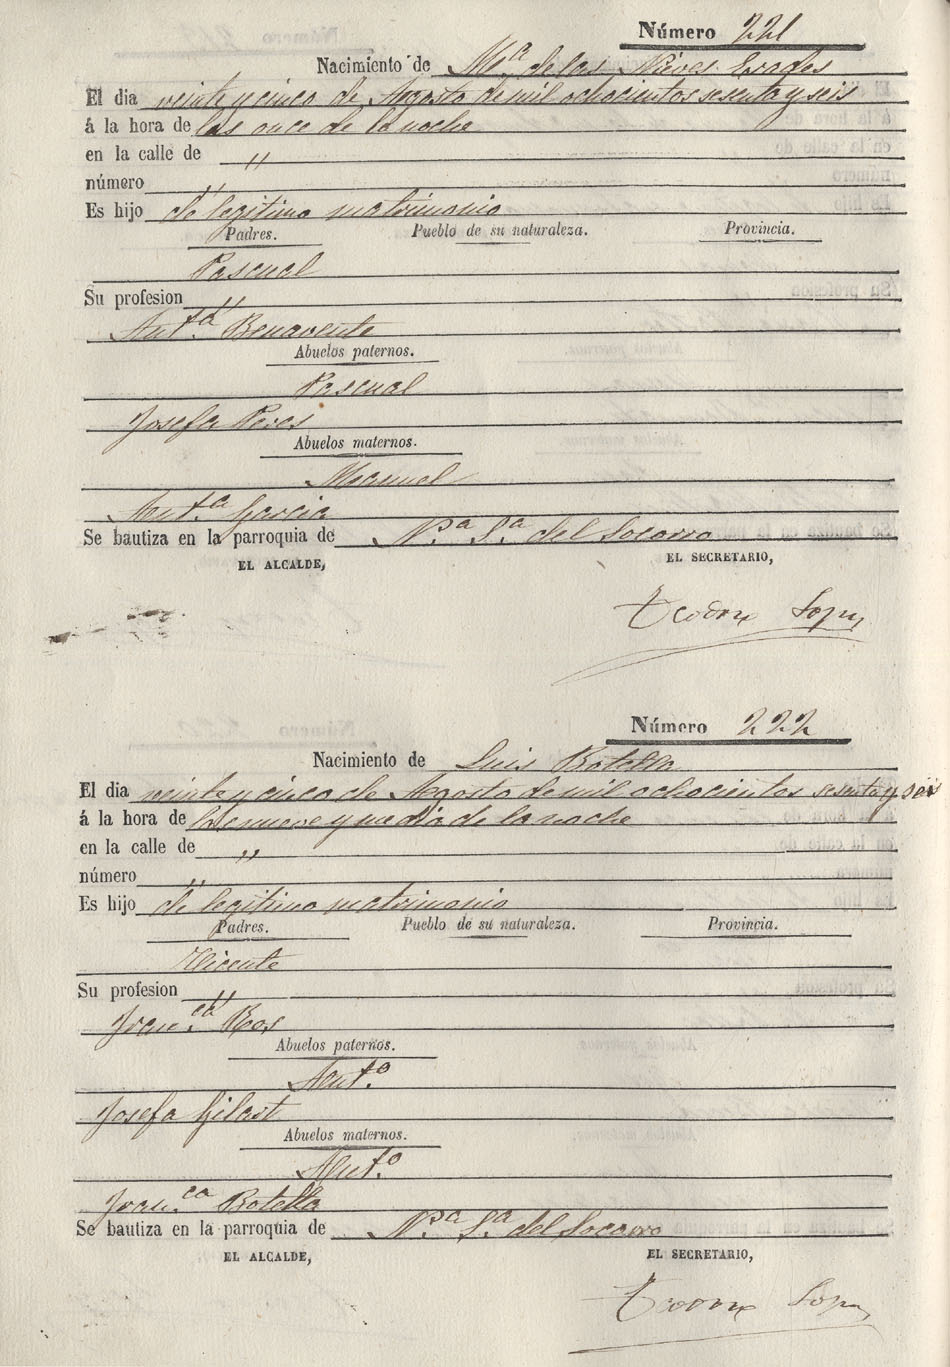 Número 221
Nacimiento de Mª de las Nieves Erades
El dia veinte y cinco de Agosto de mil ochocientos sesenta y seis
á la hora de las once de la noche
en la calle de "
número "
Es hijo de legitimo matrimonio
Padres. Pueblo de su naturaleza. Provincia.
Pascual
Su profesion "
Ant.ª Benavente
Abuelos paternos.
Pascual
Josefa Peres
Abuelos maternos.
Manuel
Ant.ª Garcia
Se bautiza en la parroquia de N.ª S.ª del Socorro
EL ALCALDE, EL SECRETARIO,
Teodoro Lopez
Número 222
Nacimiento de Luis Botella
El dia veinte y cinco de Agosto de mil ochocientos sesenta y seis
á la hora de las nueve y media de la noche
en la calle de "
número "
Es hijo de legitimo matrimonio
Padres. Pueblo de su naturaleza. Provincia.
Vicente
Su profesion "
Fran.ca Ros
Abuelos paternos.
Ant.º
Josefa Gilart
Abuelos maternos.
Ant.º
Fran.ca Botella
Se bautiza en la parroquia de N.ª S.ª del Socorro
EL ALCALDE, EL SECRETARIO,
Teodoro Lopez